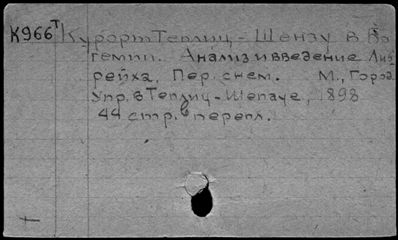 К966т Курорт Теплиц-Шенау в Бо
гемии. Анализ и введение Либ
рейха. Пер. с нем. М., Город.
Упр. в Теплиц-Шенауе, 1898
44 стр. в перепл.